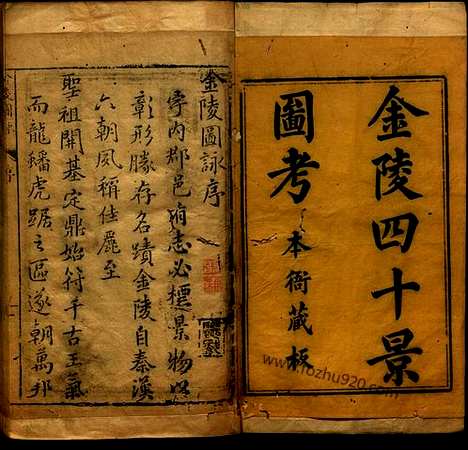 金陵四十景
圖考
本衙藏板
金陵圖詠序
宇內郡邑有志必標景物以
彰形勝存名蹟金陵自秦漢
六朝夙稱佳麗至
聖祖開基定鼎始符千古王氣
而龍蟠虎踞之區遂朝萬邦